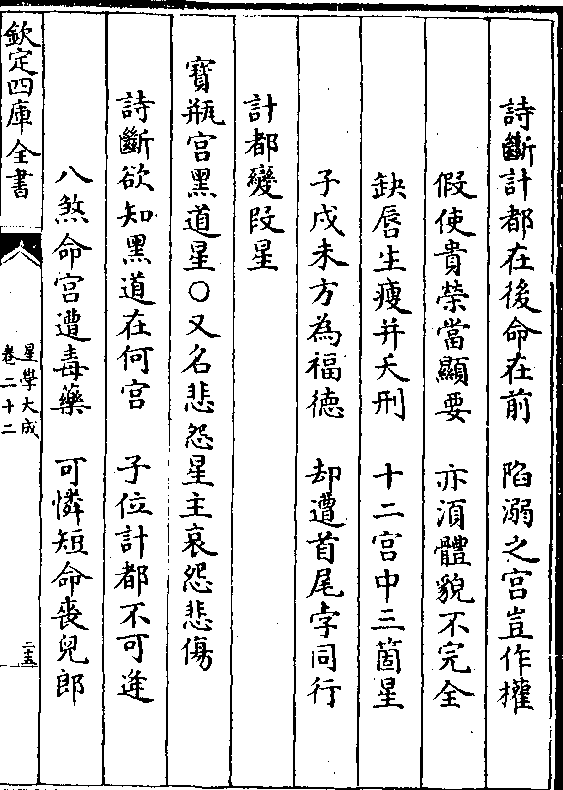 詩斷計都在後命在前　陷溺之宮豈作權
假使貴榮當顯要　亦須體貌不完全
缺唇生瘦并夭刑　十二宮中三箇星
子戌未方為福徳　却遭首尾孛同行
計都變段星
寳瓶宮黑道星○又名悲怨星主哀怨悲傷
詩斷欲知黑道在何宮　子位計都不可逢
八煞命宮遭毒藥　可憐短命喪兒郎
欽定四庫全書
星學大成
卷二十二
二十五